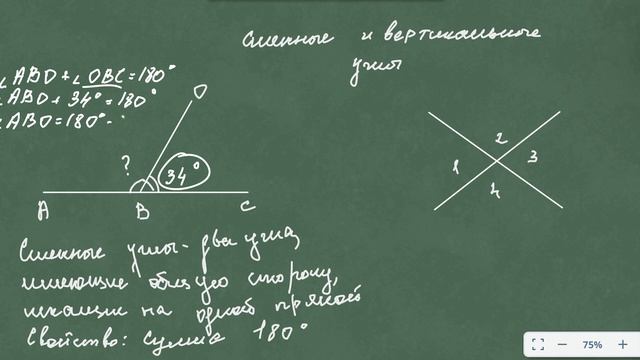 Смежные и вертикальные
углы
∠ABO+∠OBC=180°
∠ABO+34°=180°
∠ABO=180°-
O
?
34°
A
B
C
1
2
3
4
Смежные углы - два угла,
имеющие общую сторону,
лежащие на одной прямой
Свойство: сумма 180°
75%